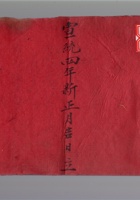 宣統四年新正月吉日立